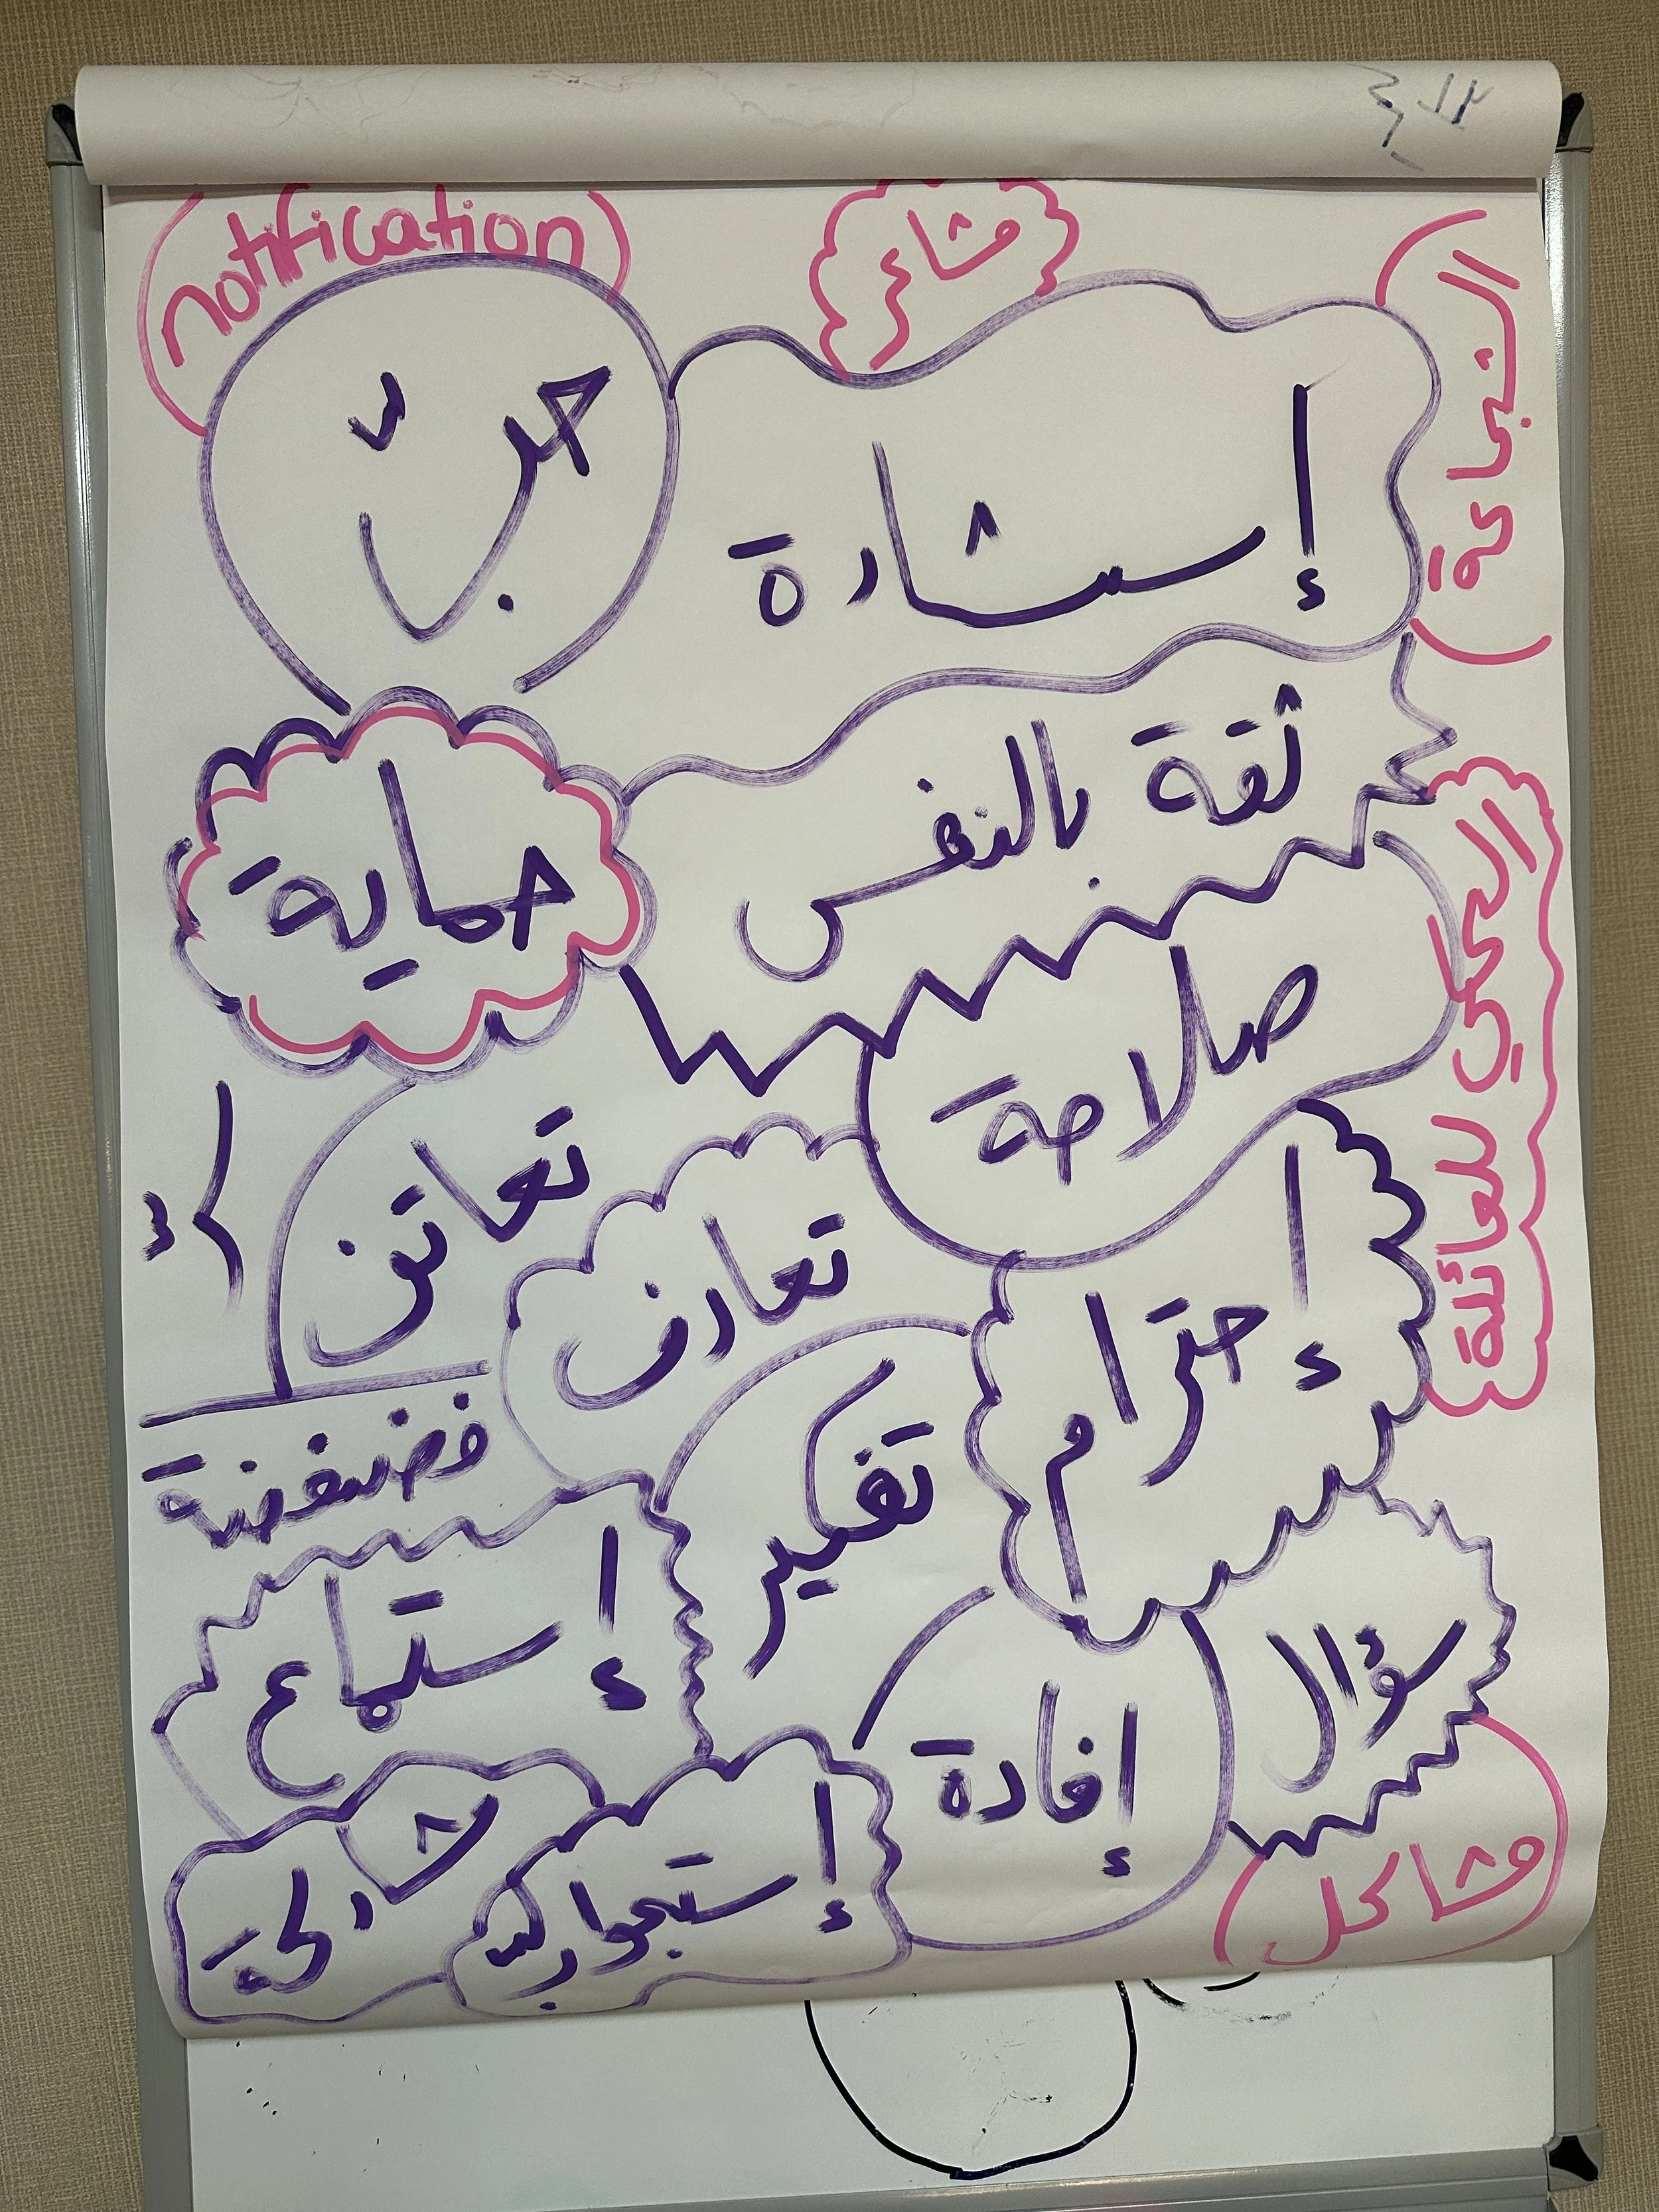 (notification)
مشاعر
حبّ
إستشارة
(الشجاعة)
ثقة بالنفس
حماية
صلاحة
الحكي للعائلة
تعاتن
تعارف
إحترام
فضفضة
تفكير
إستماع
سؤال
إفادة
مشاركة
إستجواب
مشاكل